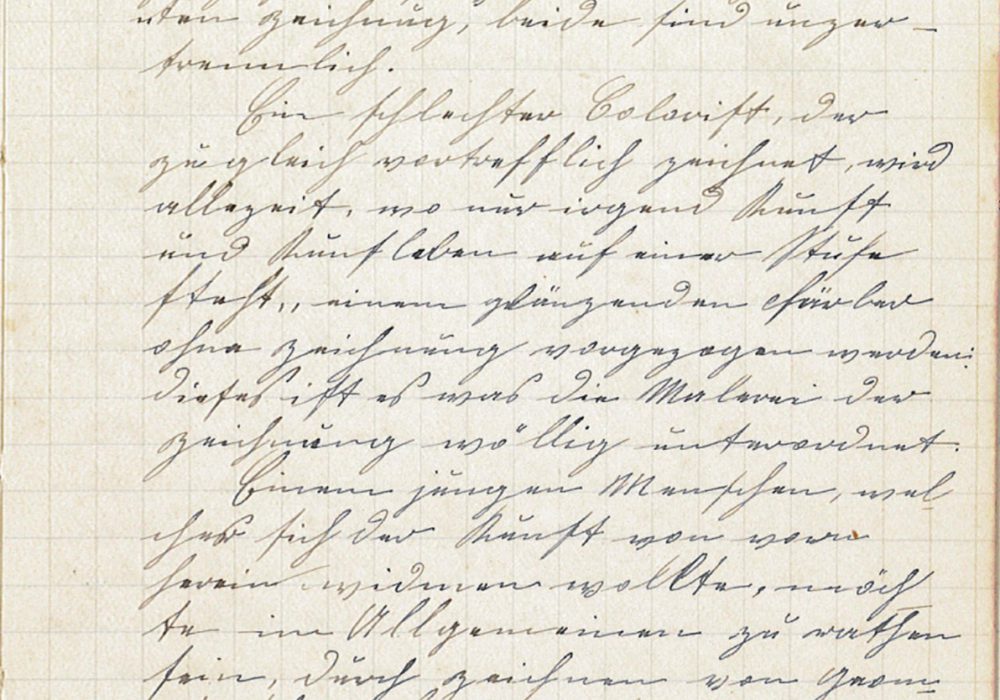 ten Zeichnung, beide sind unzer-
trennlich.
Ein schlechter Colorist, der
zugleich vortrefflich zeichnet, wird
allezeit, wo nur irgend Kunst
und Kunsleben auf einer Stufe
steht, einem glänzenden Färber
ohne Zeichnung vorgezogen werden:
dieses ist es was die Malerei der
Zeichnung wöllig unterordnet.
Einem jungen Menschen, wel
cher sich der Kunst von vorn
herein widmen wollte, möch
te im Allgemeinen zu rathen
sein, durch zeichnen von Geom